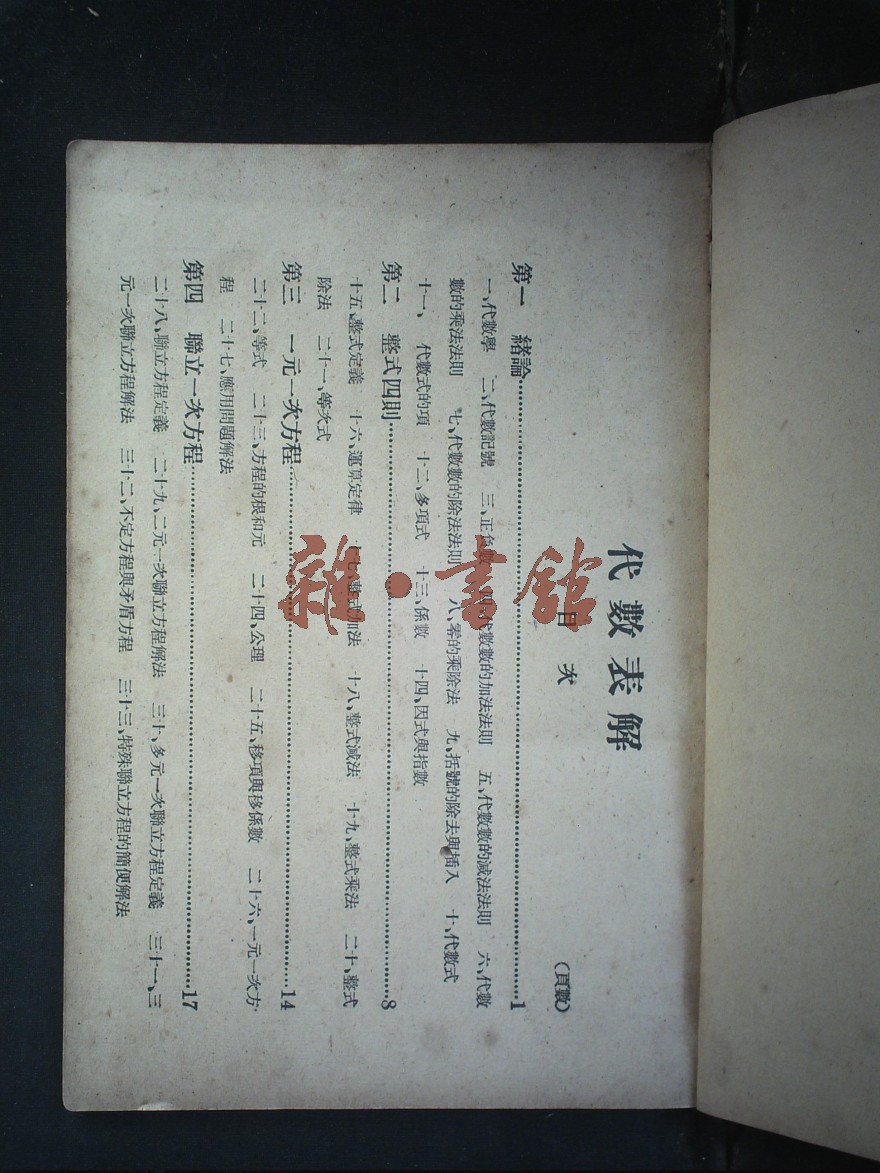 代數表解
目次
(頁數)
第一 緒論……1
一、代數學 二、代數記號 三、正負數 四、代數數的加法法則 五、代數數的減法法則 六、代數
數的乘法法則 七、代數數的除法法則 八、零的乘除法 九、括號的除去與插入 十、代數式
十一、代數式的項 十二、多項式 十三、係數 十四、因式與指數
第二 整式四則……8
十五、整式定義 十六、運算定律 十七、整式加法 十八、整式減法 十九、整式乘法 二十、整式
除法 二十一、等次式
第三 一元一次方程……14
二十二、等式 二十三、方程的根和元 二十四、公理 二十五、移項與移係數 二十六、一元一次方
程 二十七、應用問題解法
第四 聯立一次方程……17
二十八、聯立方程定義 二十九、二元一次聯立方程解法 三十、多元一次聯立方程定義 三十一、三
元一次聯立方程解法 三十二、不定方程與矛盾方程 三十三、特殊聯立方程的簡便解法
雜·書館